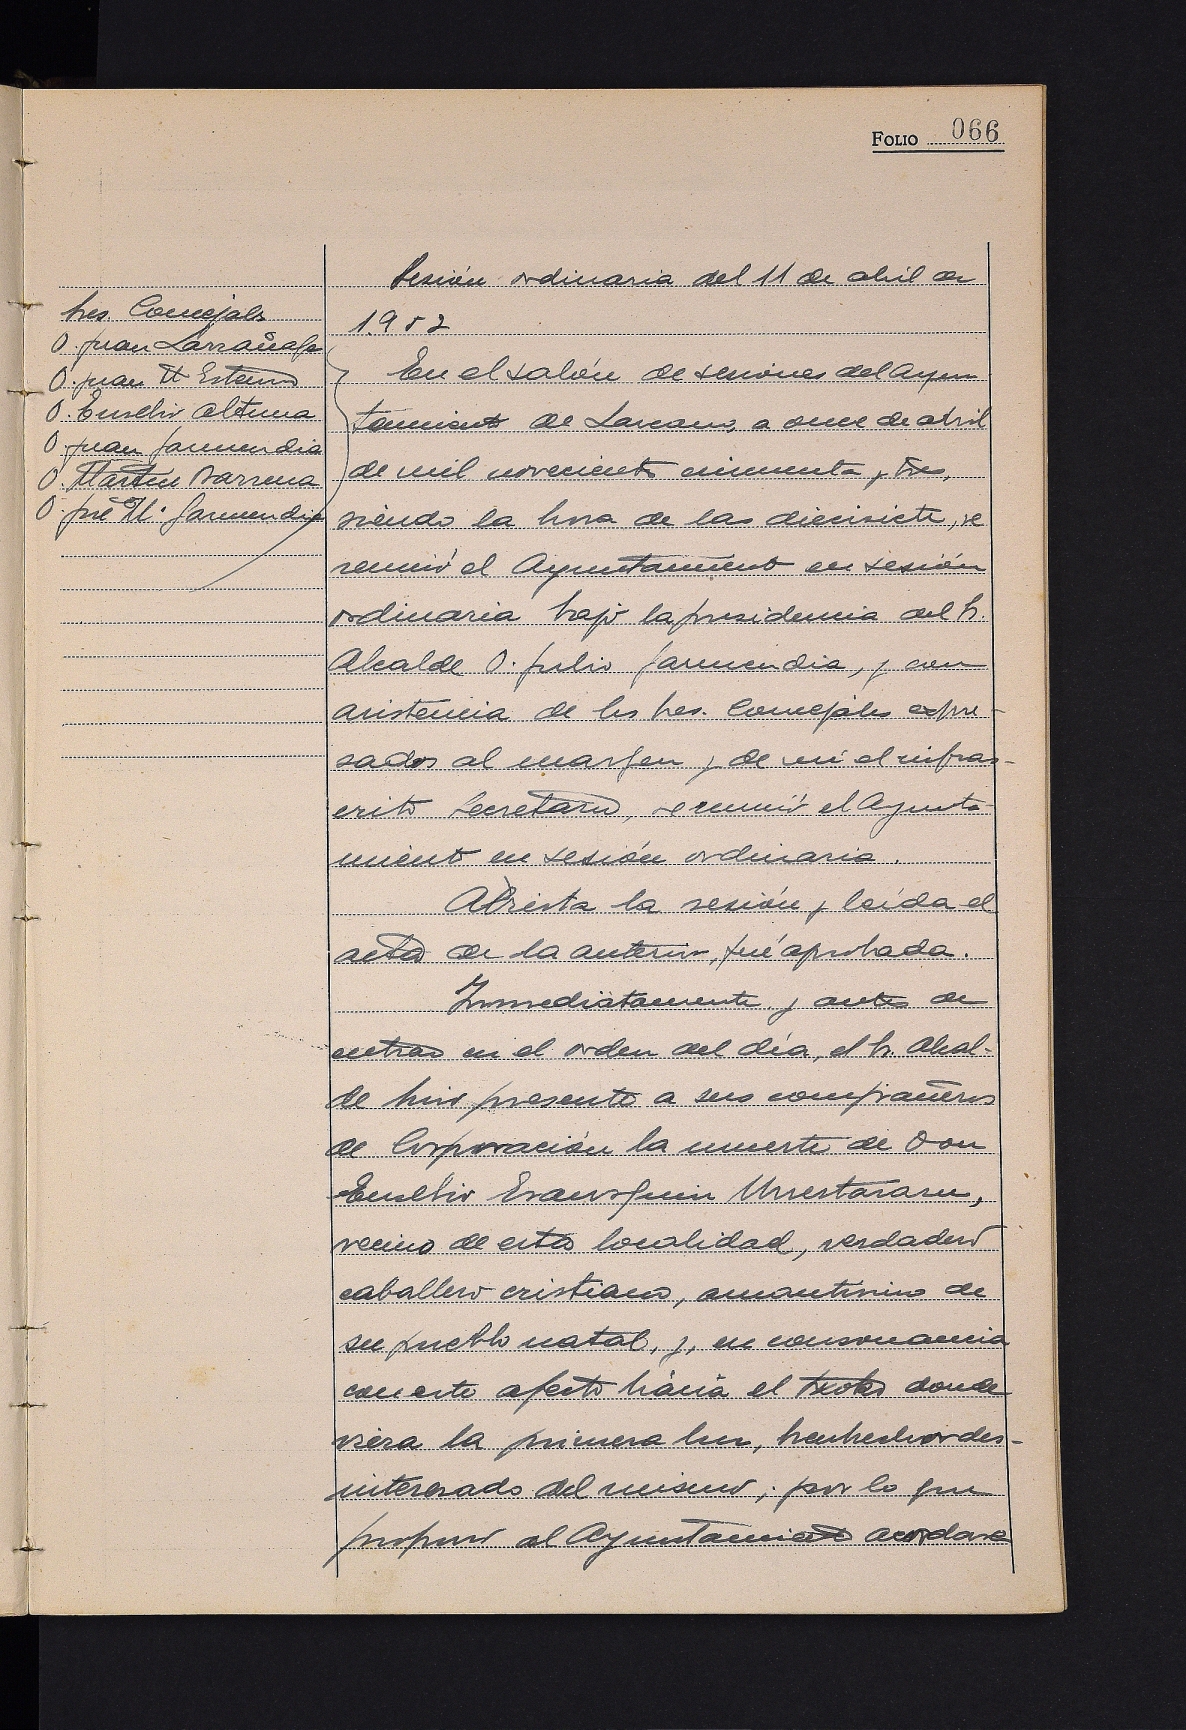 FOLIO 066
Sesión ordinaria del 11 de abril de
1952
Sres. Concejales
D. Juan Larrañaga
D. Juan M Esteno
D. Eusebio Altuna
D. Juan Garmendia
D. Martin Barrena
D. José Mª Garmendia
En el salón de sesiones del Ayun
tamiento de Lazcano, a once de abril
de mil novecientos cincuenta y tres,
siendo la hora de las diecisiete, se
reunió el Ayuntamiento en sesión
ordinaria bajo la presidencia del Sr.
Alcalde D. Julio Garmendia, y con
asistencia de los Sres. Concejales expre-
sados al margen y de mi el infras-
crito Secretario, se reunió el Ayunta-
miento en sesión ordinaria.
Abierta la sesión y leída el
acta de la anterior, fué aprobada.
Inmediatamente y antes de
entrar en el orden del día, el Sr. Alcal-
de hizo presente a sus compañeros
de Corporación la muerte de Don
Eusebio Urrestarazu,
vecino de esta localidad, verdadero
caballero cristiano, amantisimo de
su pueblo natal, y, en consonancia
con este afecto hácia el donde
viera la primera luz, bienhechor des-
interesado del mismo; por lo que
propuso al Ayuntamiento acordara